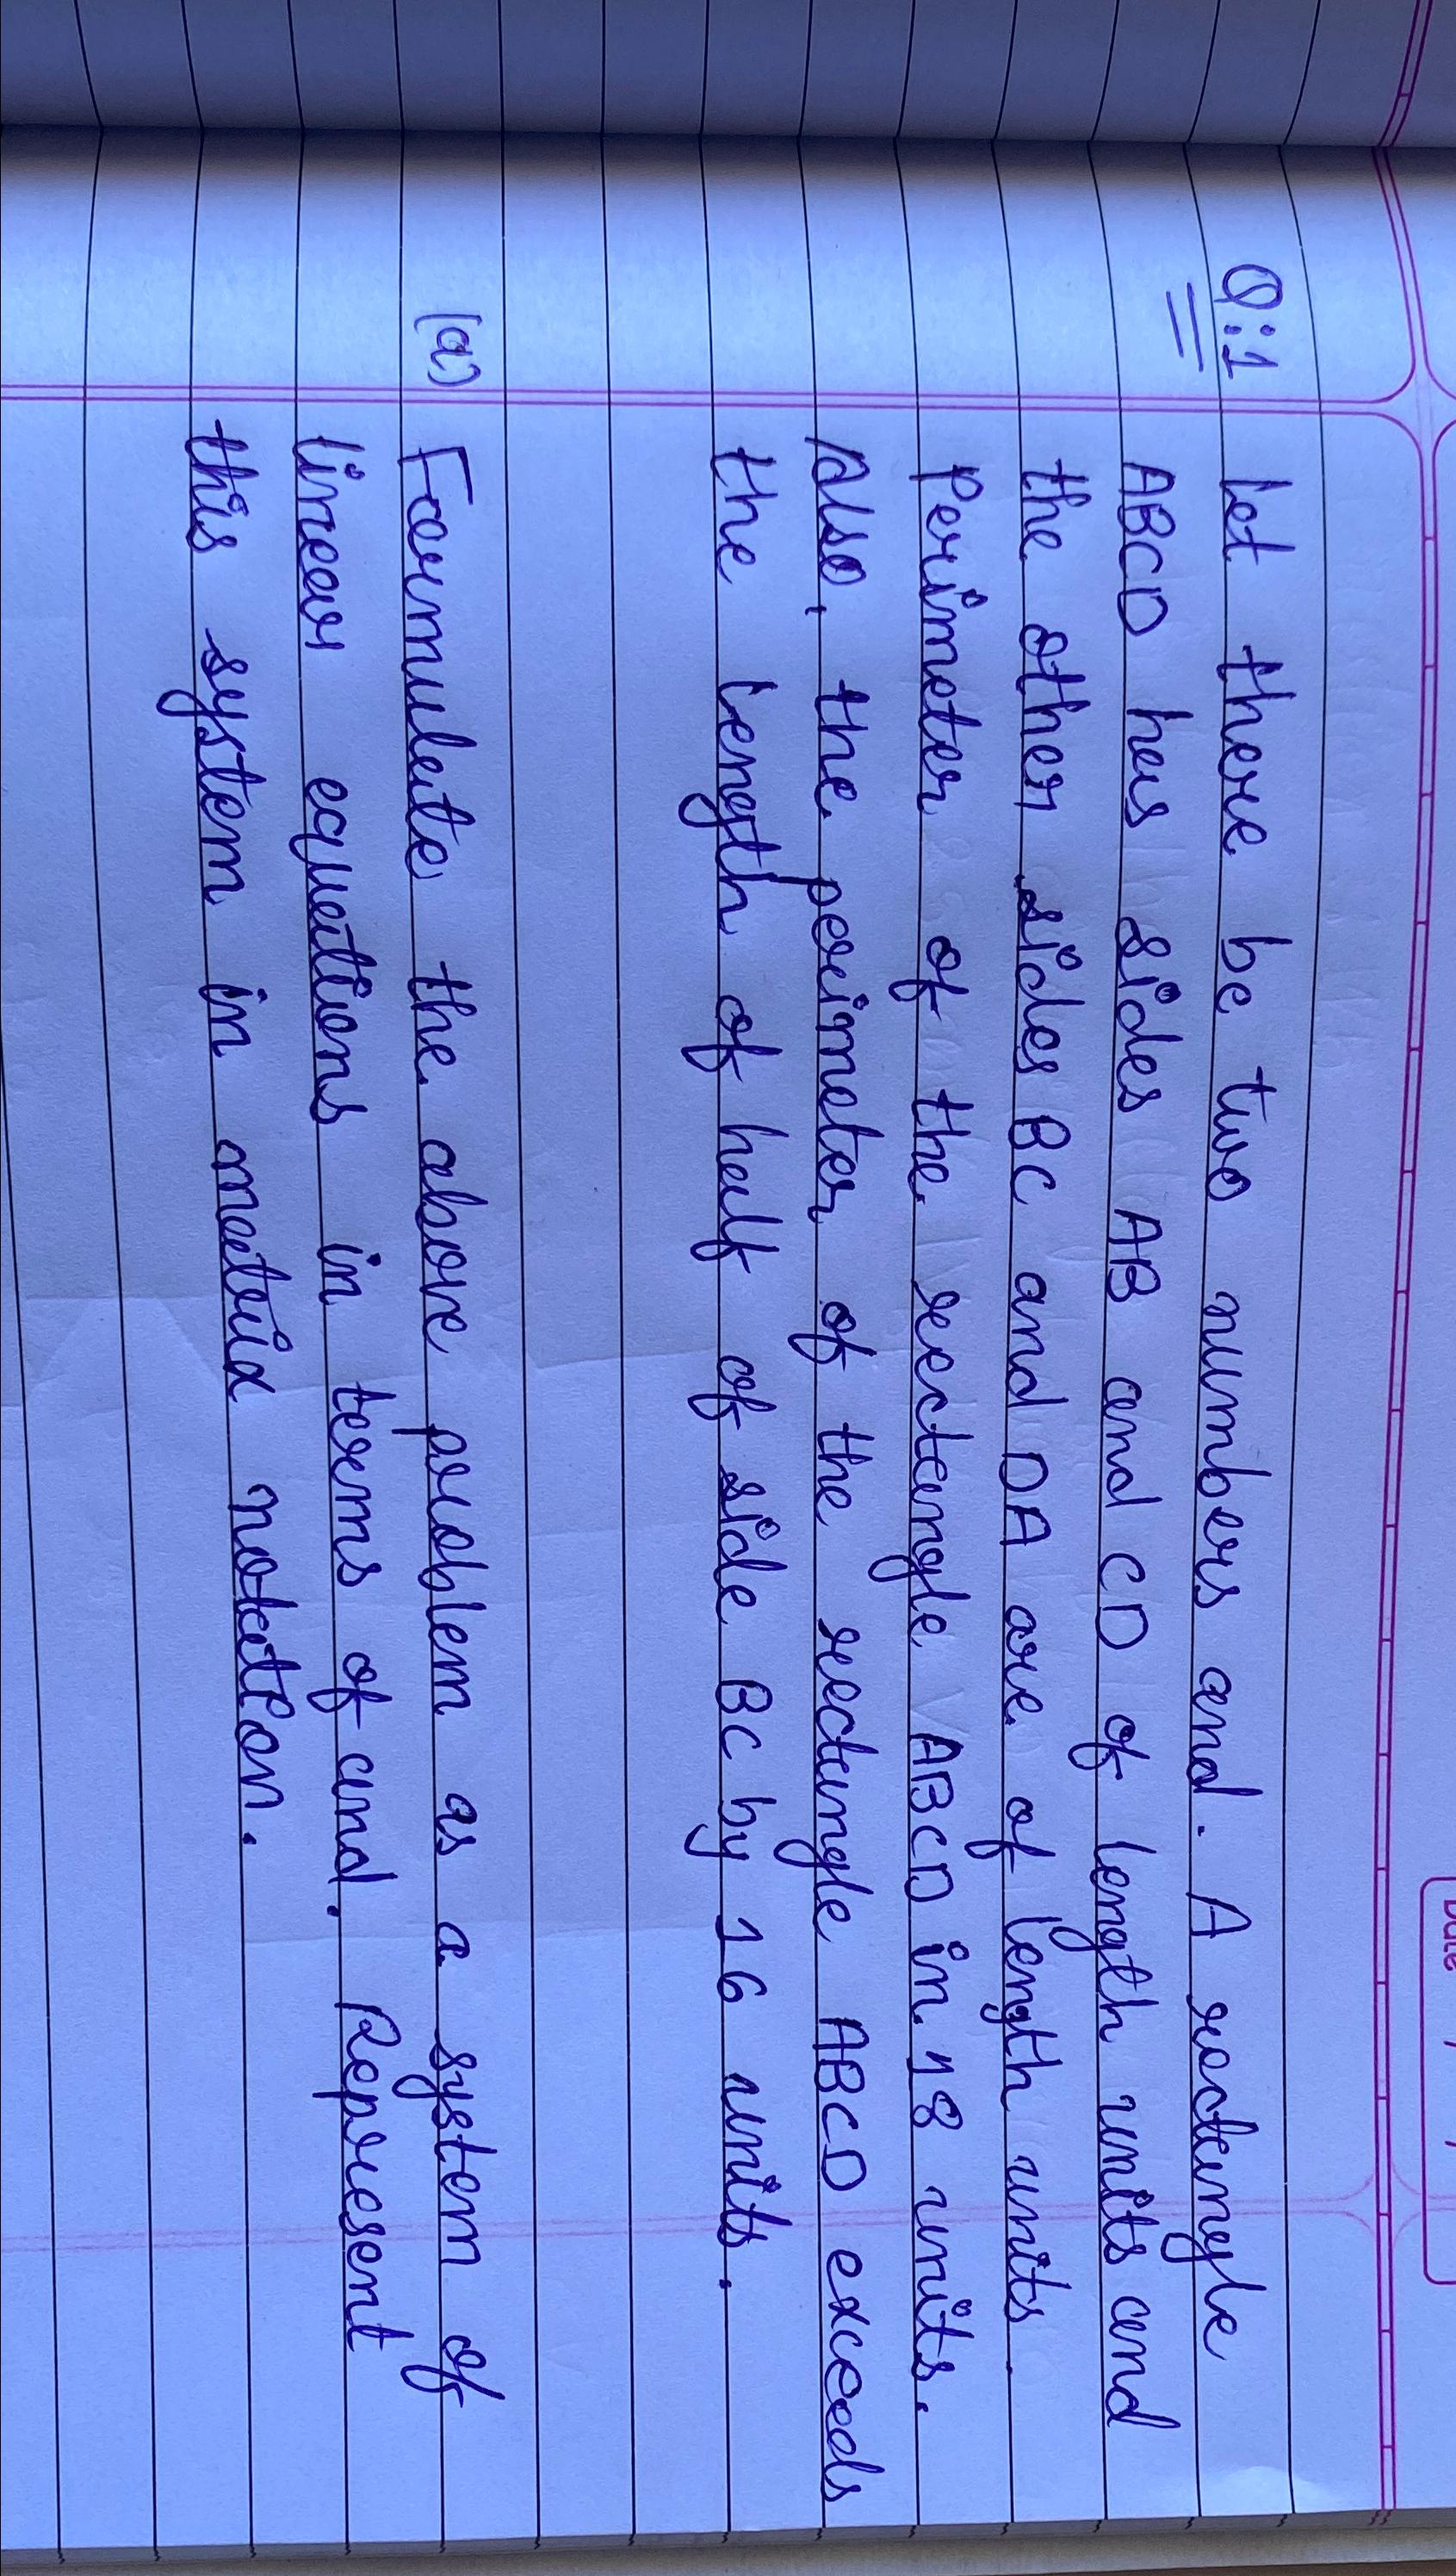 Q:1 Let there be two numbers and. A rectangle
ABCD has sides AB and CD of length units and
the other sides BC and DA are of length units.
Perimeter of the rectangle ABCD in 18 units.
Also, the perimeter of the rectangle ABCD exceeds
the length of half of side BC by 16 units.
(a) Formulate the above problem as a system of
linear equations in terms of and. Represent
this system in matrix notation.